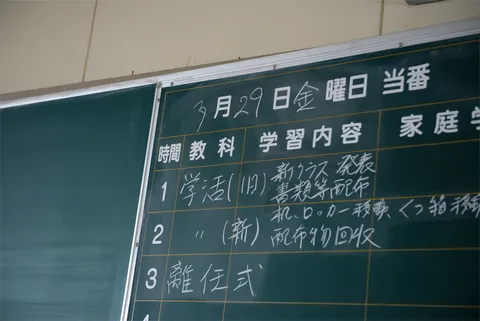 3月29日金曜日 当番
時間 教科 学習内容 家庭学
1 学活(旧) 新クラス発表
書類等配布
2 〃 (新) 机、ロッカー移動、くつ箱移
配布物回収
3 離任式